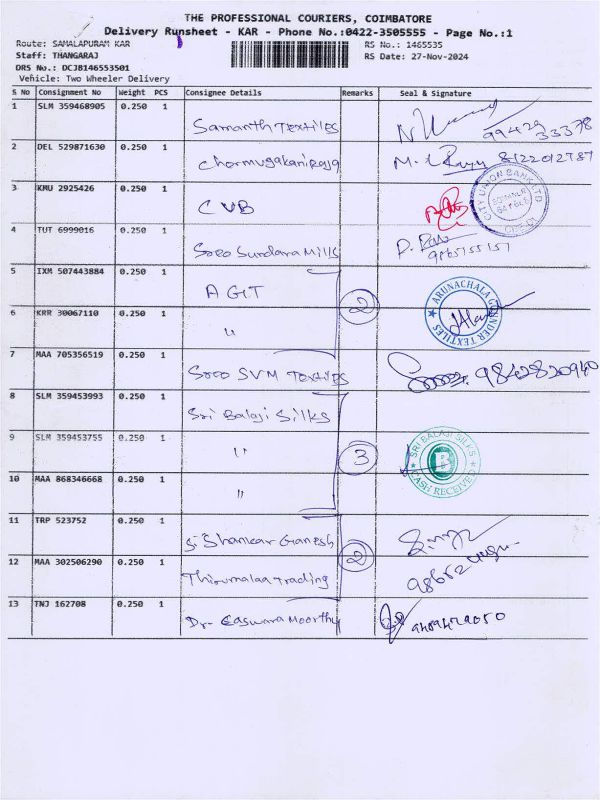 THE PROFESSIONAL COURIERS, COIMBATORE
Delivery Runsheet - KAR - Phone No.:0422-3505555 - Page No.:1
Route: SAMALAPURAM KAR RS No.: 1465535
Staff: THANGARAJ RS Date: 27-Nov-2024
DRS No.: DCJB146553501
Vehicle: Two Wheeler Delivery
S No Consignment No Weight PCS Consignee Details Remarks Seal & Signature
1 SLM 359468905 0.250 1 Samanth Textiles 99429 33378
2 DEL 529871630 0.250 1 8122012787
3 KMU 2925426 0.250 1 CUB CITY UNION BANK LTD
4 TUT 6999016 0.250 1 Soro Sundara Mills 9865755157
5 IXM 507443884 0.250 1 AGT 2 ARUNACHALA GOUNDER TEXTILES
6 KRR 30067110 0.250 1 "
7 MAA 705356519 0.250 1 Soro SVM Textiles 9842820940
8 SLM 359453993 0.250 1 Sri Balaji Silks
9 SLM 359453755 0.250 1 " 3 SRI BALAJI SILKS B CASH RECEIVED
10 MAA 868346668 0.250 1 "
11 TRP 523752 0.250 1 Sri Shankar Ganesh 2
12 MAA 302506290 0.250 1 Thirumalaa Trading
13 TNJ 162708 0.250 1 Dr. Easwara Moorthy